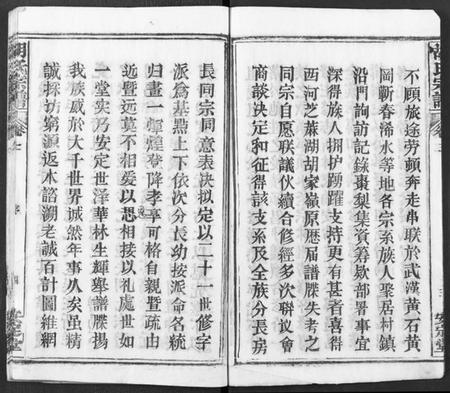 不顧旅途勞頓奔走串联於武漢黃石黃
岡蘄春浠水等地各宗系族人聚居村鎮
沿門詢訪記錄棗梨集資籌欵部署事宜
深得族人拥护踴躍支持更有甚者喜得
西河芝蔴湖胡家嶺原歷屆譜牒失考之
同宗自愿联議伙續合修經多次聯議會
商談决定和征得該支系及全族分長房
長同宗同意表决拟定以二十一世修字
派為基点上下依次分長幼按派命名統
归畫一煇煌登降孝享可格自親暨疏由
近暨远莫不相爱以恩相接以礼處世如
一堂实乃安定世泽華林生輝舉譜牒揚
我族威於大千世界诚然年事八矣虽精
誠採坊窮源返木諮溯老誠百計圖維網
安定堂